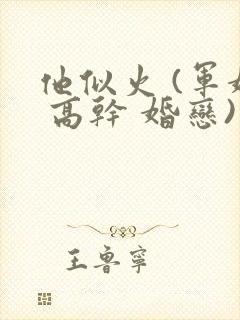 他似火（軍婚
高幹 婚戀）
王魯寧